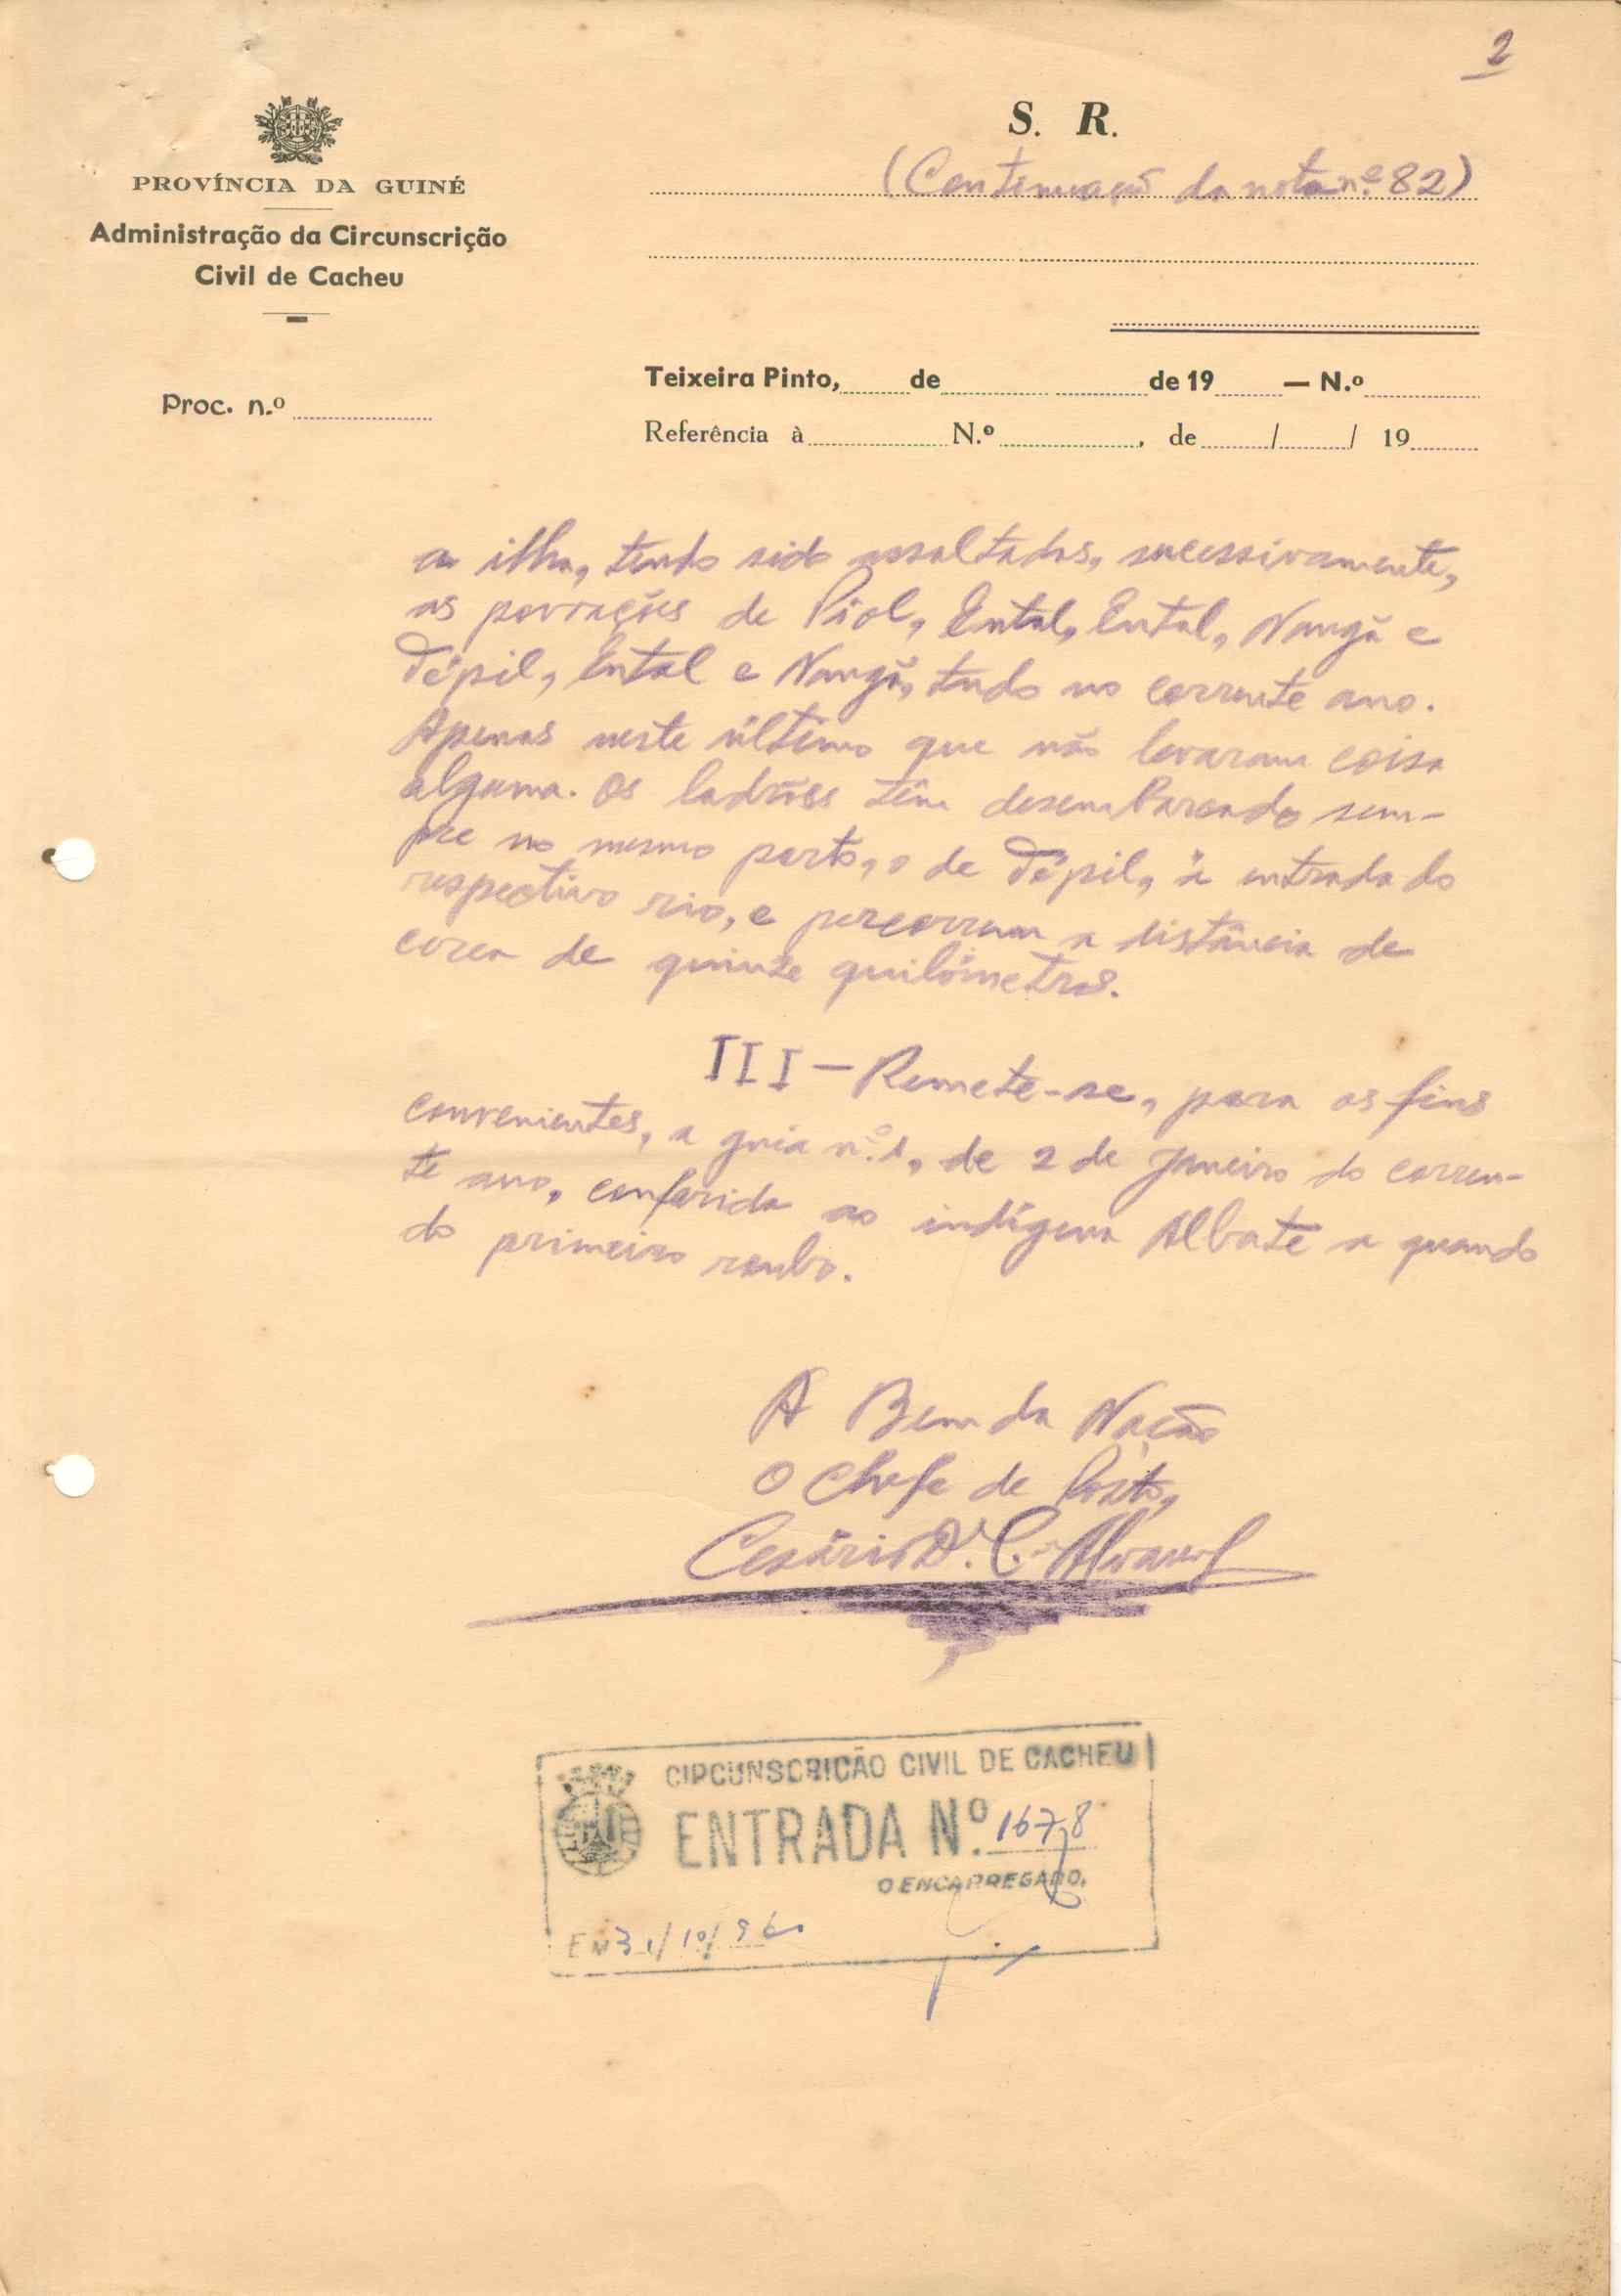 2
S. R.
PROVÍNCIA DA GUINÉ
Administração da Circunscrição
Civil de Cacheu
(Continuação da nota n.º 82)
Teixeira Pinto, de de 19 — N.º
Proc. n.º
Referência à N.º , de / / 19
a ilha, tendo sido assaltadas, sucessivamente,
as povoações de Piol, Ental, Ental, Nangã e
Tépil, Ental e Nangã, tudo no corrente ano.
Apenas neste último que não levaram coisa
alguma. Os ladrões têm desembarcado sem-
pre no mesmo porto, o de Tépil, à entrada do
respectivo rio, e percorrem a distância de
cerca de quinze quilómetros.
III — Remete-se, para os fins
convenientes, a guia n.º 1, de 2 de Janeiro do corren-
te ano, conferida ao indígena Albate a quando
do primeiro roubo.
A Bem da Nação
O Chefe de Posto,
Cesário D. C.
CIRCUNSCRIÇÃO CIVIL DE CACHEU
ENTRADA N.º 1678
O ENCARREGADO,
EM 31/10/960